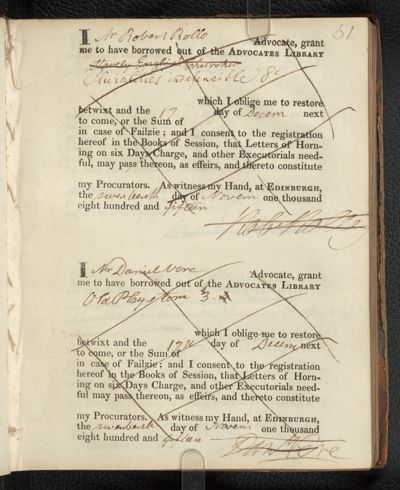 51.
I Mr Robert Rollo Advocate, grant
me to have borrowed out of the ADVOCATES LIBRARY
Pluralities indefensible 8o
which I oblige me to restore
betwixt and the 17 day of Decem next
to come, or the Sum of
in case of Failzie; and I consent to the registration
hereof in the Books of Session, that Letters of Horn-
ing on six Days Charge, and other Executorials need-
ful, may pass thereon, as effeirs, and thereto constitute
my Procurators. As witness my Hand, at EDINBURGH,
the seventeenth day of Novem one thousand
eight hundred and fifteen
I Mr Daniel Vere Advocate, grant
me to have borrowed out of the ADVOCATES LIBRARY
Old Plays tom 3.
which I oblige me to restore
betwixt and the 17th day of Decem next
to come, or the Sum of
in case of Failzie; and I consent to the registration
hereof in the Books of Session, that Letters of Horn-
ing on six Days Charge, and other Executorials need-
ful, may pass thereon, as effeirs, and thereto constitute
my Procurators. As witness my Hand, at EDINBURGH,
the seventeenth day of Novem one thousand
eight hundred and fifteen